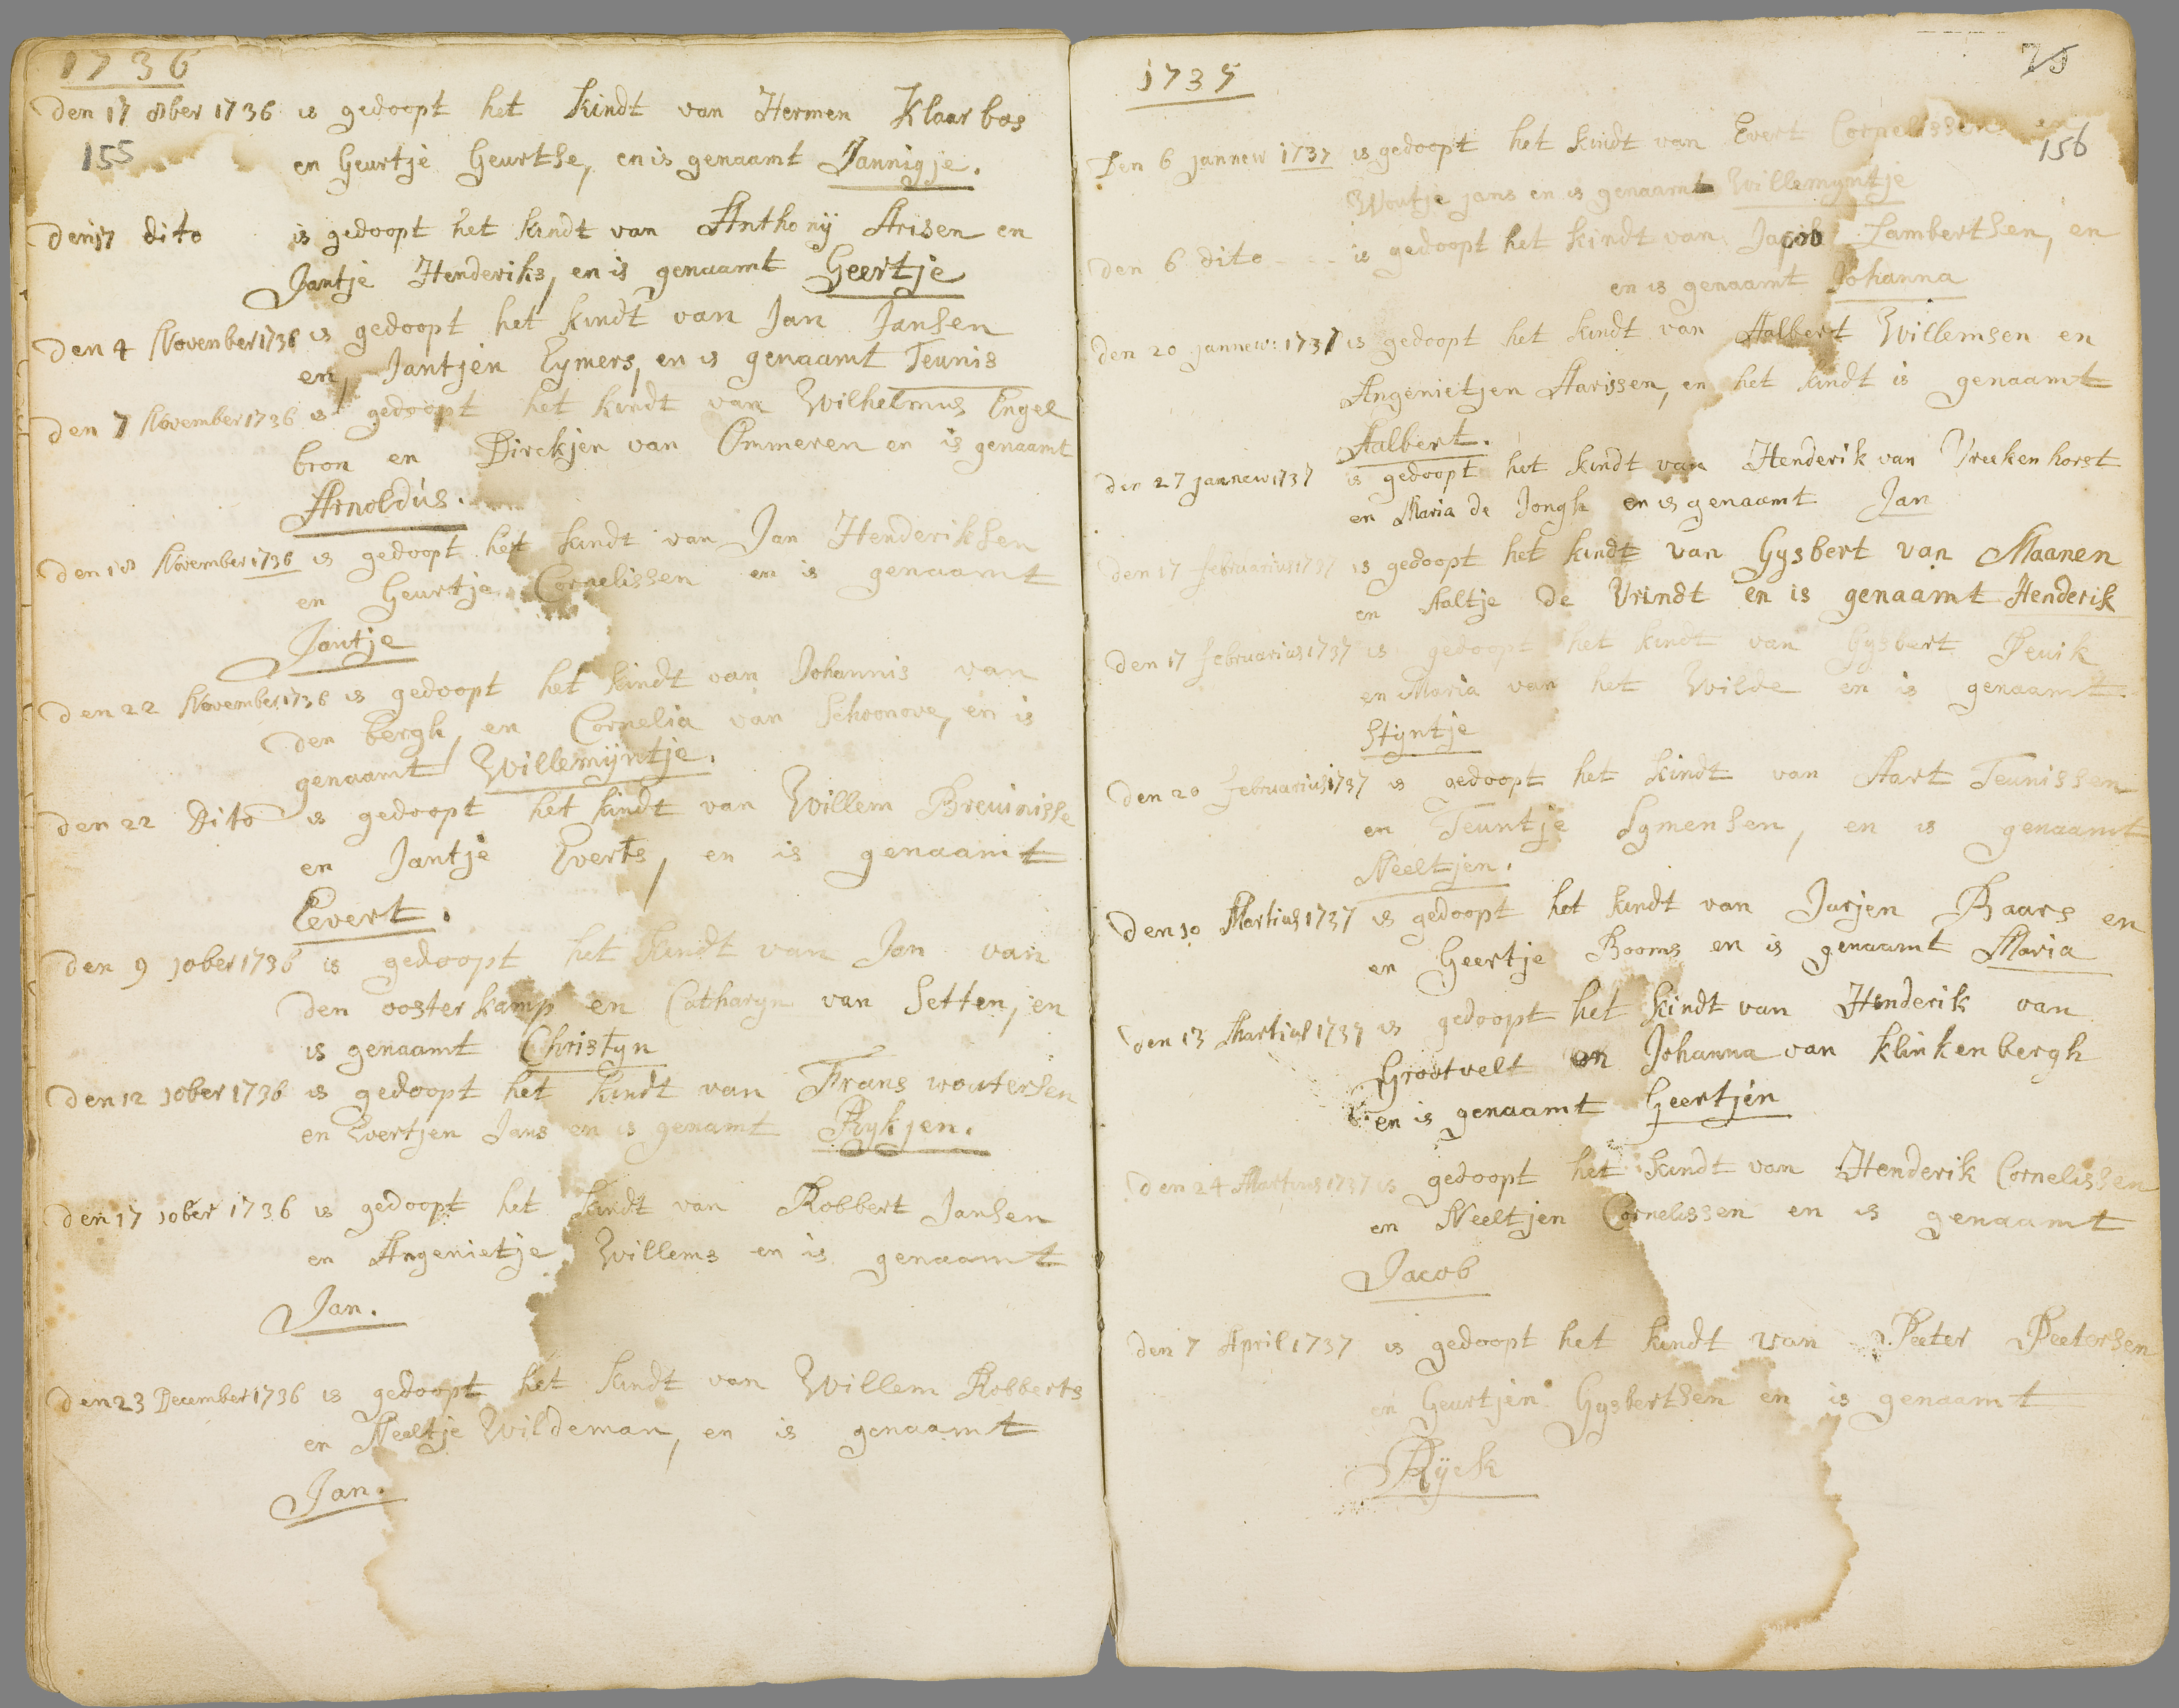 1736
Den 17 8ber 1736 is gedoopt het kindt van Hermen Klaarbos
155
en Geurtje Geurtse, en is genaamt Jannigje.
den 17 dito is gedoopt het kindt van Anthonij Arisen en
Jantje Henderiks, en is genaamt Geertje
Den 4 November 1736 is gedoopt het kindt van Jan Jansen
en, Jantjen Eymers, en is genaamt Teunis
Den 7 November 1736 is gedoopt het kindt van Wilhelmus Engel
bron en Dirckjen van Ommeren en is genaamt
Arnoldus.
Den 18 November 1736 is gedoopt het kindt van Jan Henderiksen
en Geurtje Cornelissen en is genaamt
Jantje
Den 22 November 1736 is gedoopt het kindt van Johannis van
den bergh, en Cornelia van Schoonove, en is
genaamt Willemijntje.
Den 22 Dito is gedoopt het kindt van Willem Breunisse
en Jantje Everts, en is genaamt
Eevert.
Den 9 10ber 1736 is gedoopt het kindt van Jan van
den oosterkamp en Catharyn van Setten, en
is genaamt Christyn
Den 12 10ber 1736 is gedoopt het kindt van Frans woutersen
en Evertjen Jans en is genamt Rykjen.
Den 17 10ber 1736 is gedoopt het kindt van Robbert Jansen
en Angenietje Willems en is genaamt
Jan.
Den 23 December 1736 is gedoopt het kindt van Willem Robberts
en Neeltje Wildeman, en is genaamt
Jan.
1737
75
Den 6 jannew 1737 is gedoopt het kindt van Evert Cornelissen en
156
Woutje jans en is genaamt Willemyntje
den 6 dito - - - is gedoopt het kindt van Jacob Lambertsen, en
en is genaamt Johanna
den 20 jannew: 1737 is gedoopt het kindt van Aalbert Willemsen en
Angenietjen Aarissen, en het kindt is genaamt
Aalbert.
den 27 jannew 1737 is gedoopt het kindt van Henderik van Vreekenhorst
en Maria de Jongh en is genaamt Jan
den 17 februarius 1737 is gedoopt het kindt van Gysbert van Maanen
en Aaltje de Vrindt en is genaamt Henderik
Den 17 februarius 1737 is gedoopt het kindt van Gysbert Peuik
en Maria van het Wilde en is genaamt
Styntje
Den 20 februarius 1737 is gedoopt het kindt van Aart Teunissen
en Teuntje Symensen, en is genaamt
Neeltjen.
Den 10 Martius 1737 is gedoopt het kindt van Jurjen Baars en
en Geertje Booms en is genaamt Maria
Den 13 Martius 1737 is gedoopt het kindt van Henderik van
Grootvelt en Johanna van Klinkenbergh
en is genaamt Geertjen
Den 24 Martius 1737 is gedoopt het kindt van Henderik Cornelissen
en Neeltjen Cornelissen en is genaamt
Jacob
Den 7 April 1737 is gedoopt het kindt van Peeter Peetersen
en Geurtjen Gysbertsen en is genaamt
Ryck